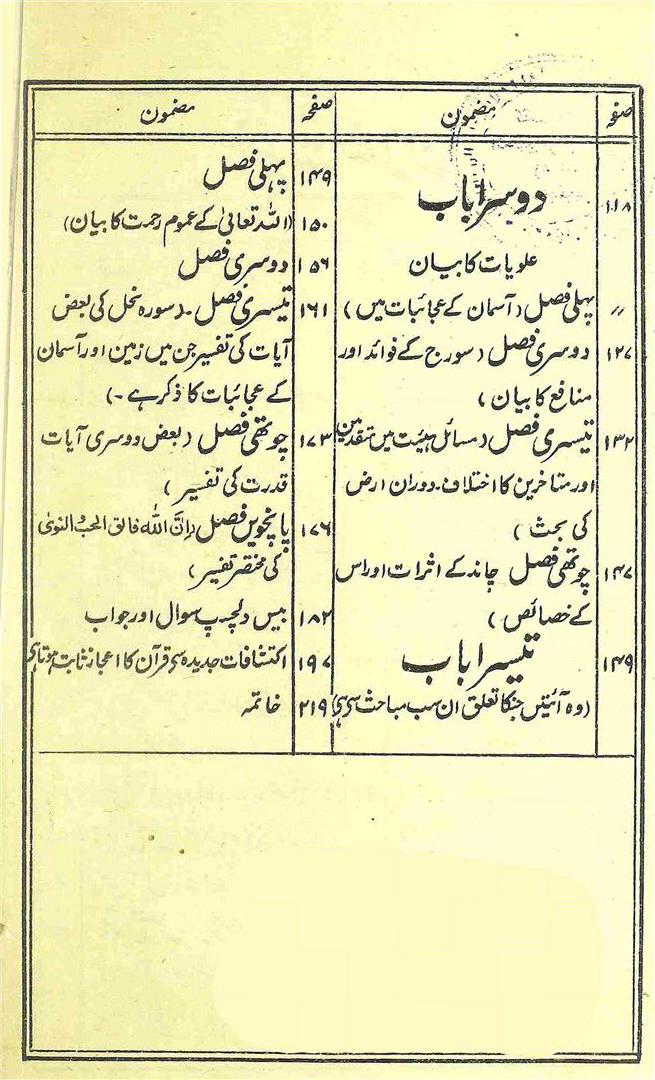 صفحہ مضمون
۱۱۸ دوسرا باب
علویات کا بیان
〃 پہلی فصل (آسمان کے عجائبات میں)
۱۲۷ دوسری فصل (سورج کے فوائد اور
منافع کا بیان)
۱۳۲ تیسری فصل (مسائل ہیئت میں متقدمین
اور متاخرین کا اختلاف۔ دوران ارض
کی بحث)
۱۴۷ چوتھی فصل چاند کے اثرات اور اس
کے خصائص)
۱۴۹ تیسرا باب
(وہ آئتیں جنکا تعلق ان سب مباحث سے ہے)
صفحہ مضمون
۱۴۹ پہلی فصل
۱۵۰ (اللہ تعالیٰ کے عموم رحمت کا بیان)
۱۵۶ دوسری فصل
۱۶۱ تیسری فصل۔ (سورہ نحل کی بعض
آیات کی تفسیر جن میں زمین اور آسمان
کے عجائبات کا ذکر ہے۔)
۱۷۳ چوتھی فصل (بعض دوسری آیات
قدرت کی تفسیر)
۱۷۶ پانچویں فصل (اِنَّ اللہ فالق الحبُ النویٰ
کی مختصر تفسیر)
۱۸۲ بیس دلچسپ سوال اور جواب
۱۹۷ اکتشافات جدیدہ سے قرآن کا اعجاز ثابت ہوتا ہے
۲۱۹ خاتمہ